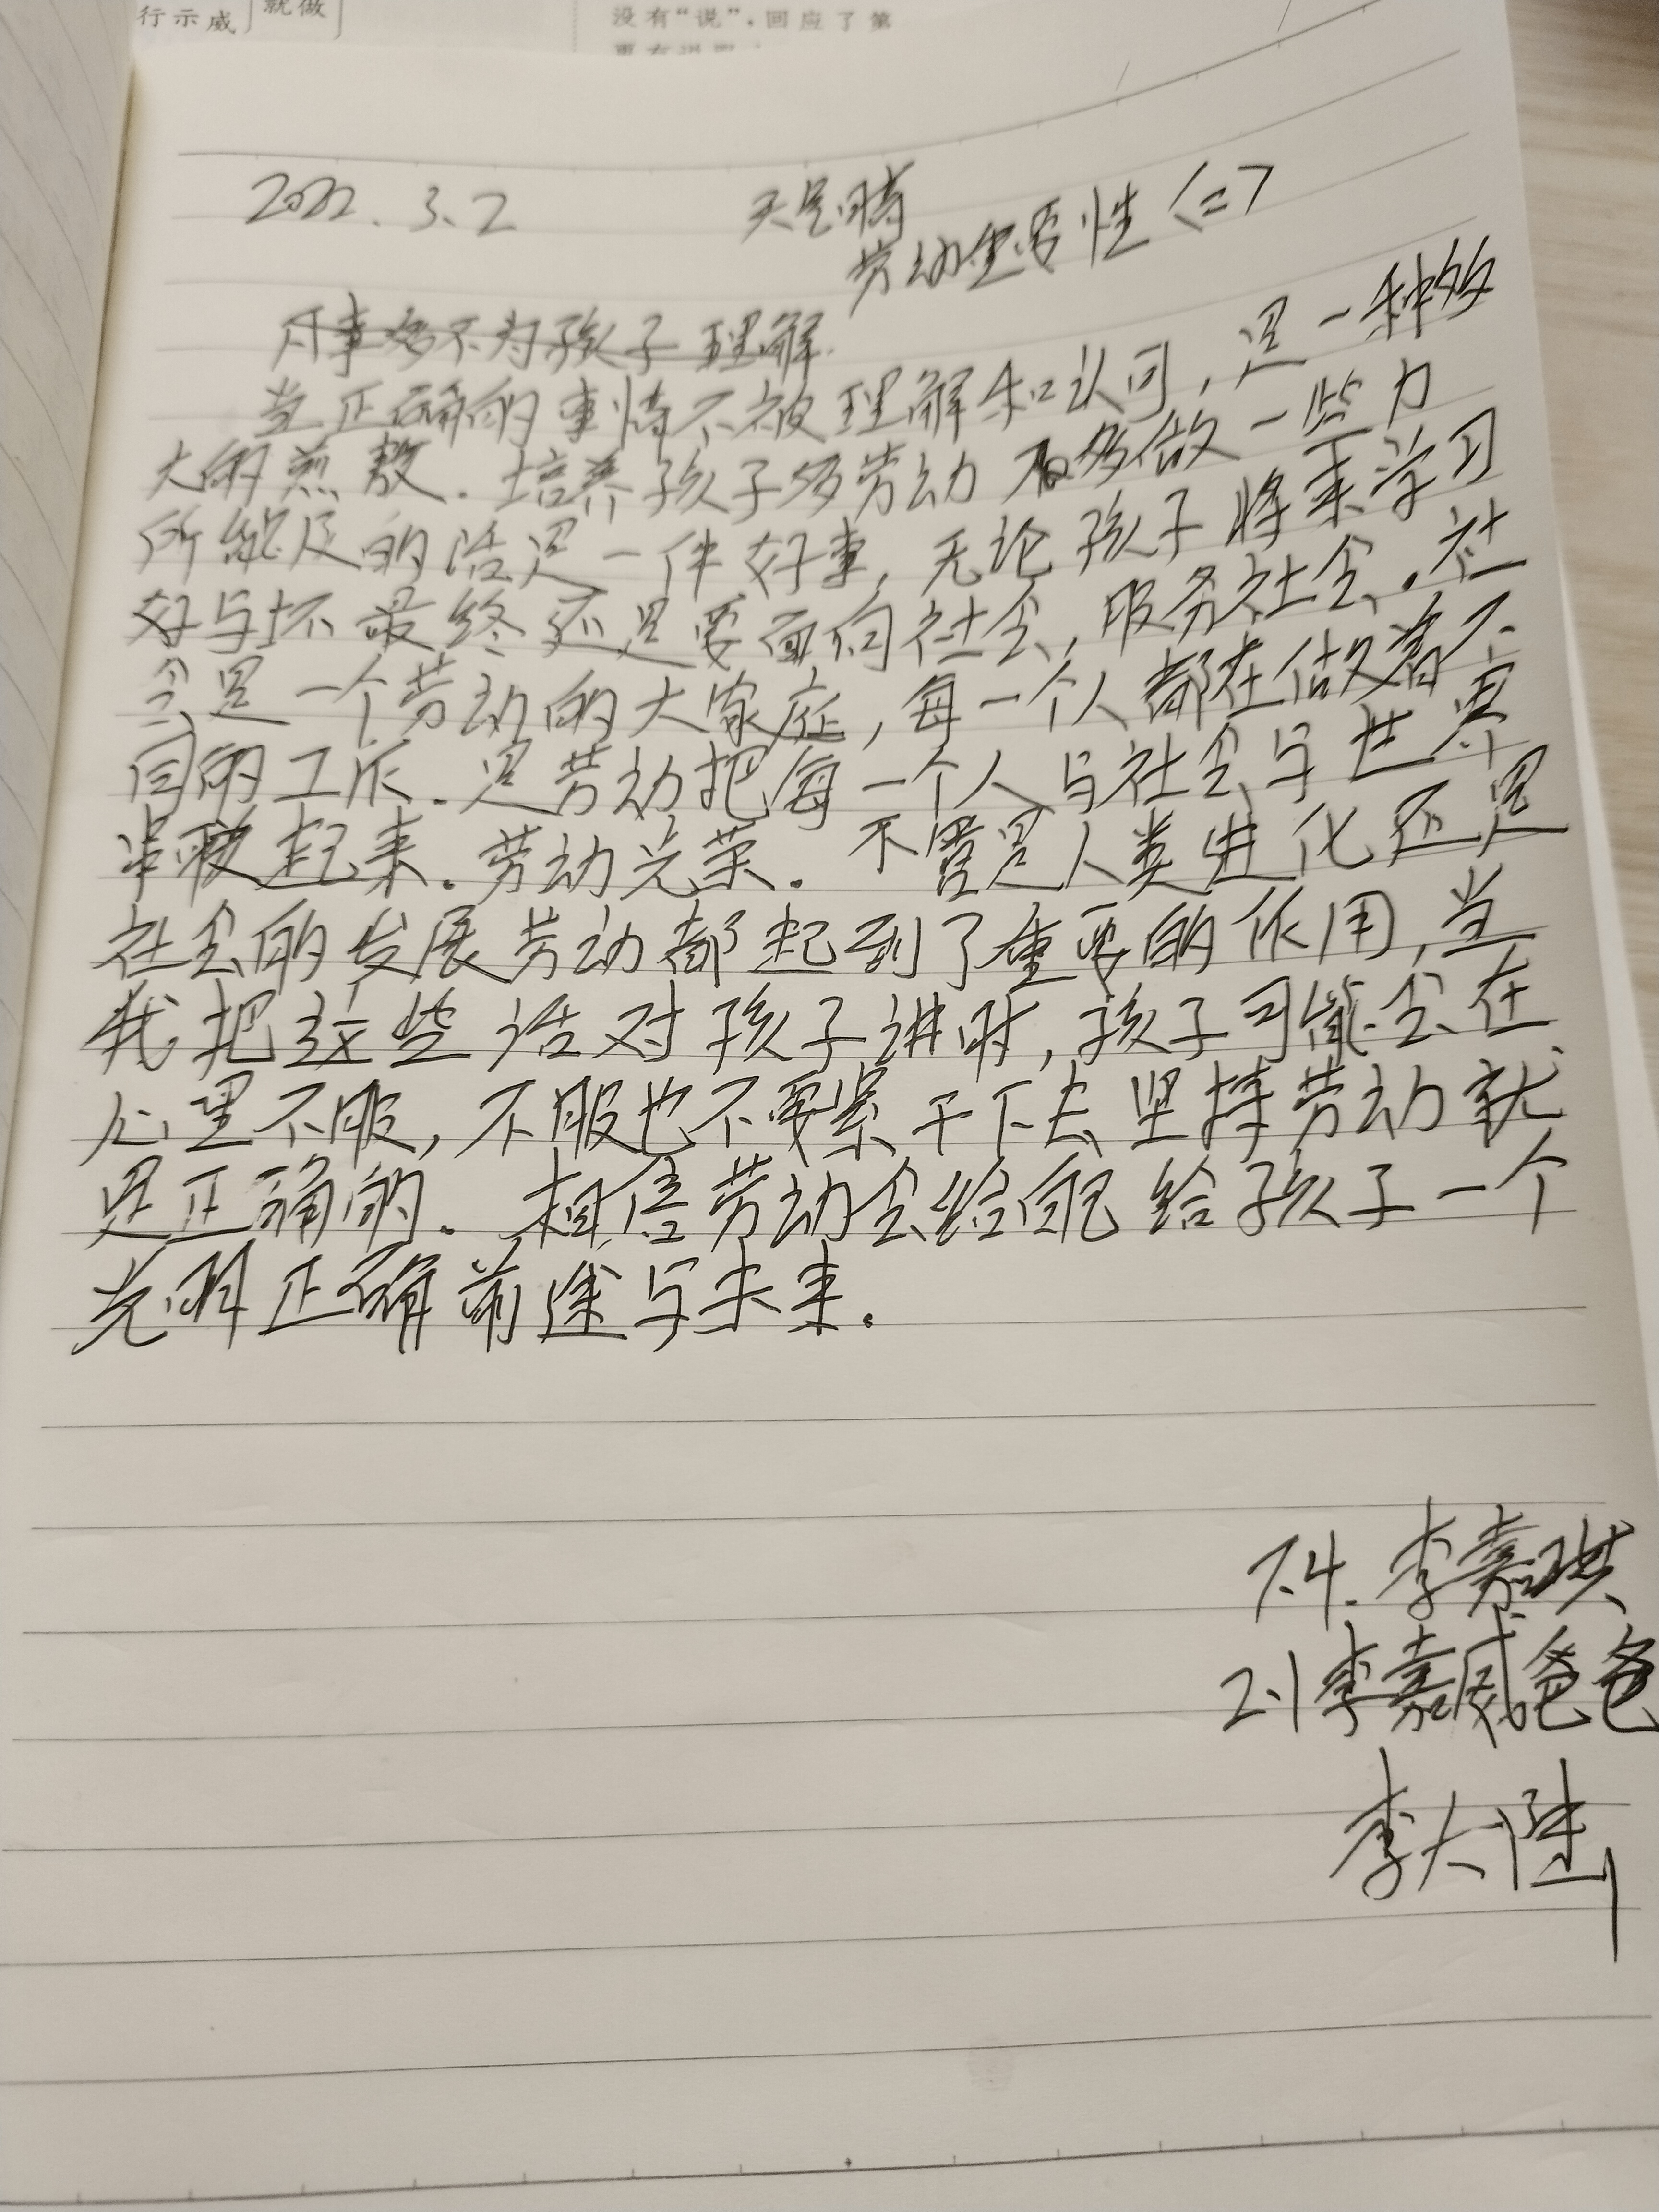 行示威 就做
没有“说”，回应了第
2022.3.2 天气晴
劳动重要性〈二〉
为孩子理解.
当正确的事情不被理解和认可，是一种多
大的煎熬.培养孩子多劳动 多做一些力
所能及的活是一件好事，无论孩子将来学习
好与坏最终还是要面向社会，服务社会.社
会是一个劳动的大家庭，每一个人都在做着不
同的工作.是劳动把每一个人与社会与世界
起来.劳动光荣.不管是人类进化还是
社会的发展劳动都起到了重要的作用，当
我把这些话对孩子讲时，孩子可能会在
心里不服，不服也不要紧干下去坚持劳动就
是正确的.相信劳动会给孩子一个
光明正确前途与未来.
7.4.李嘉琪
2.1李嘉威爸爸
李大陆